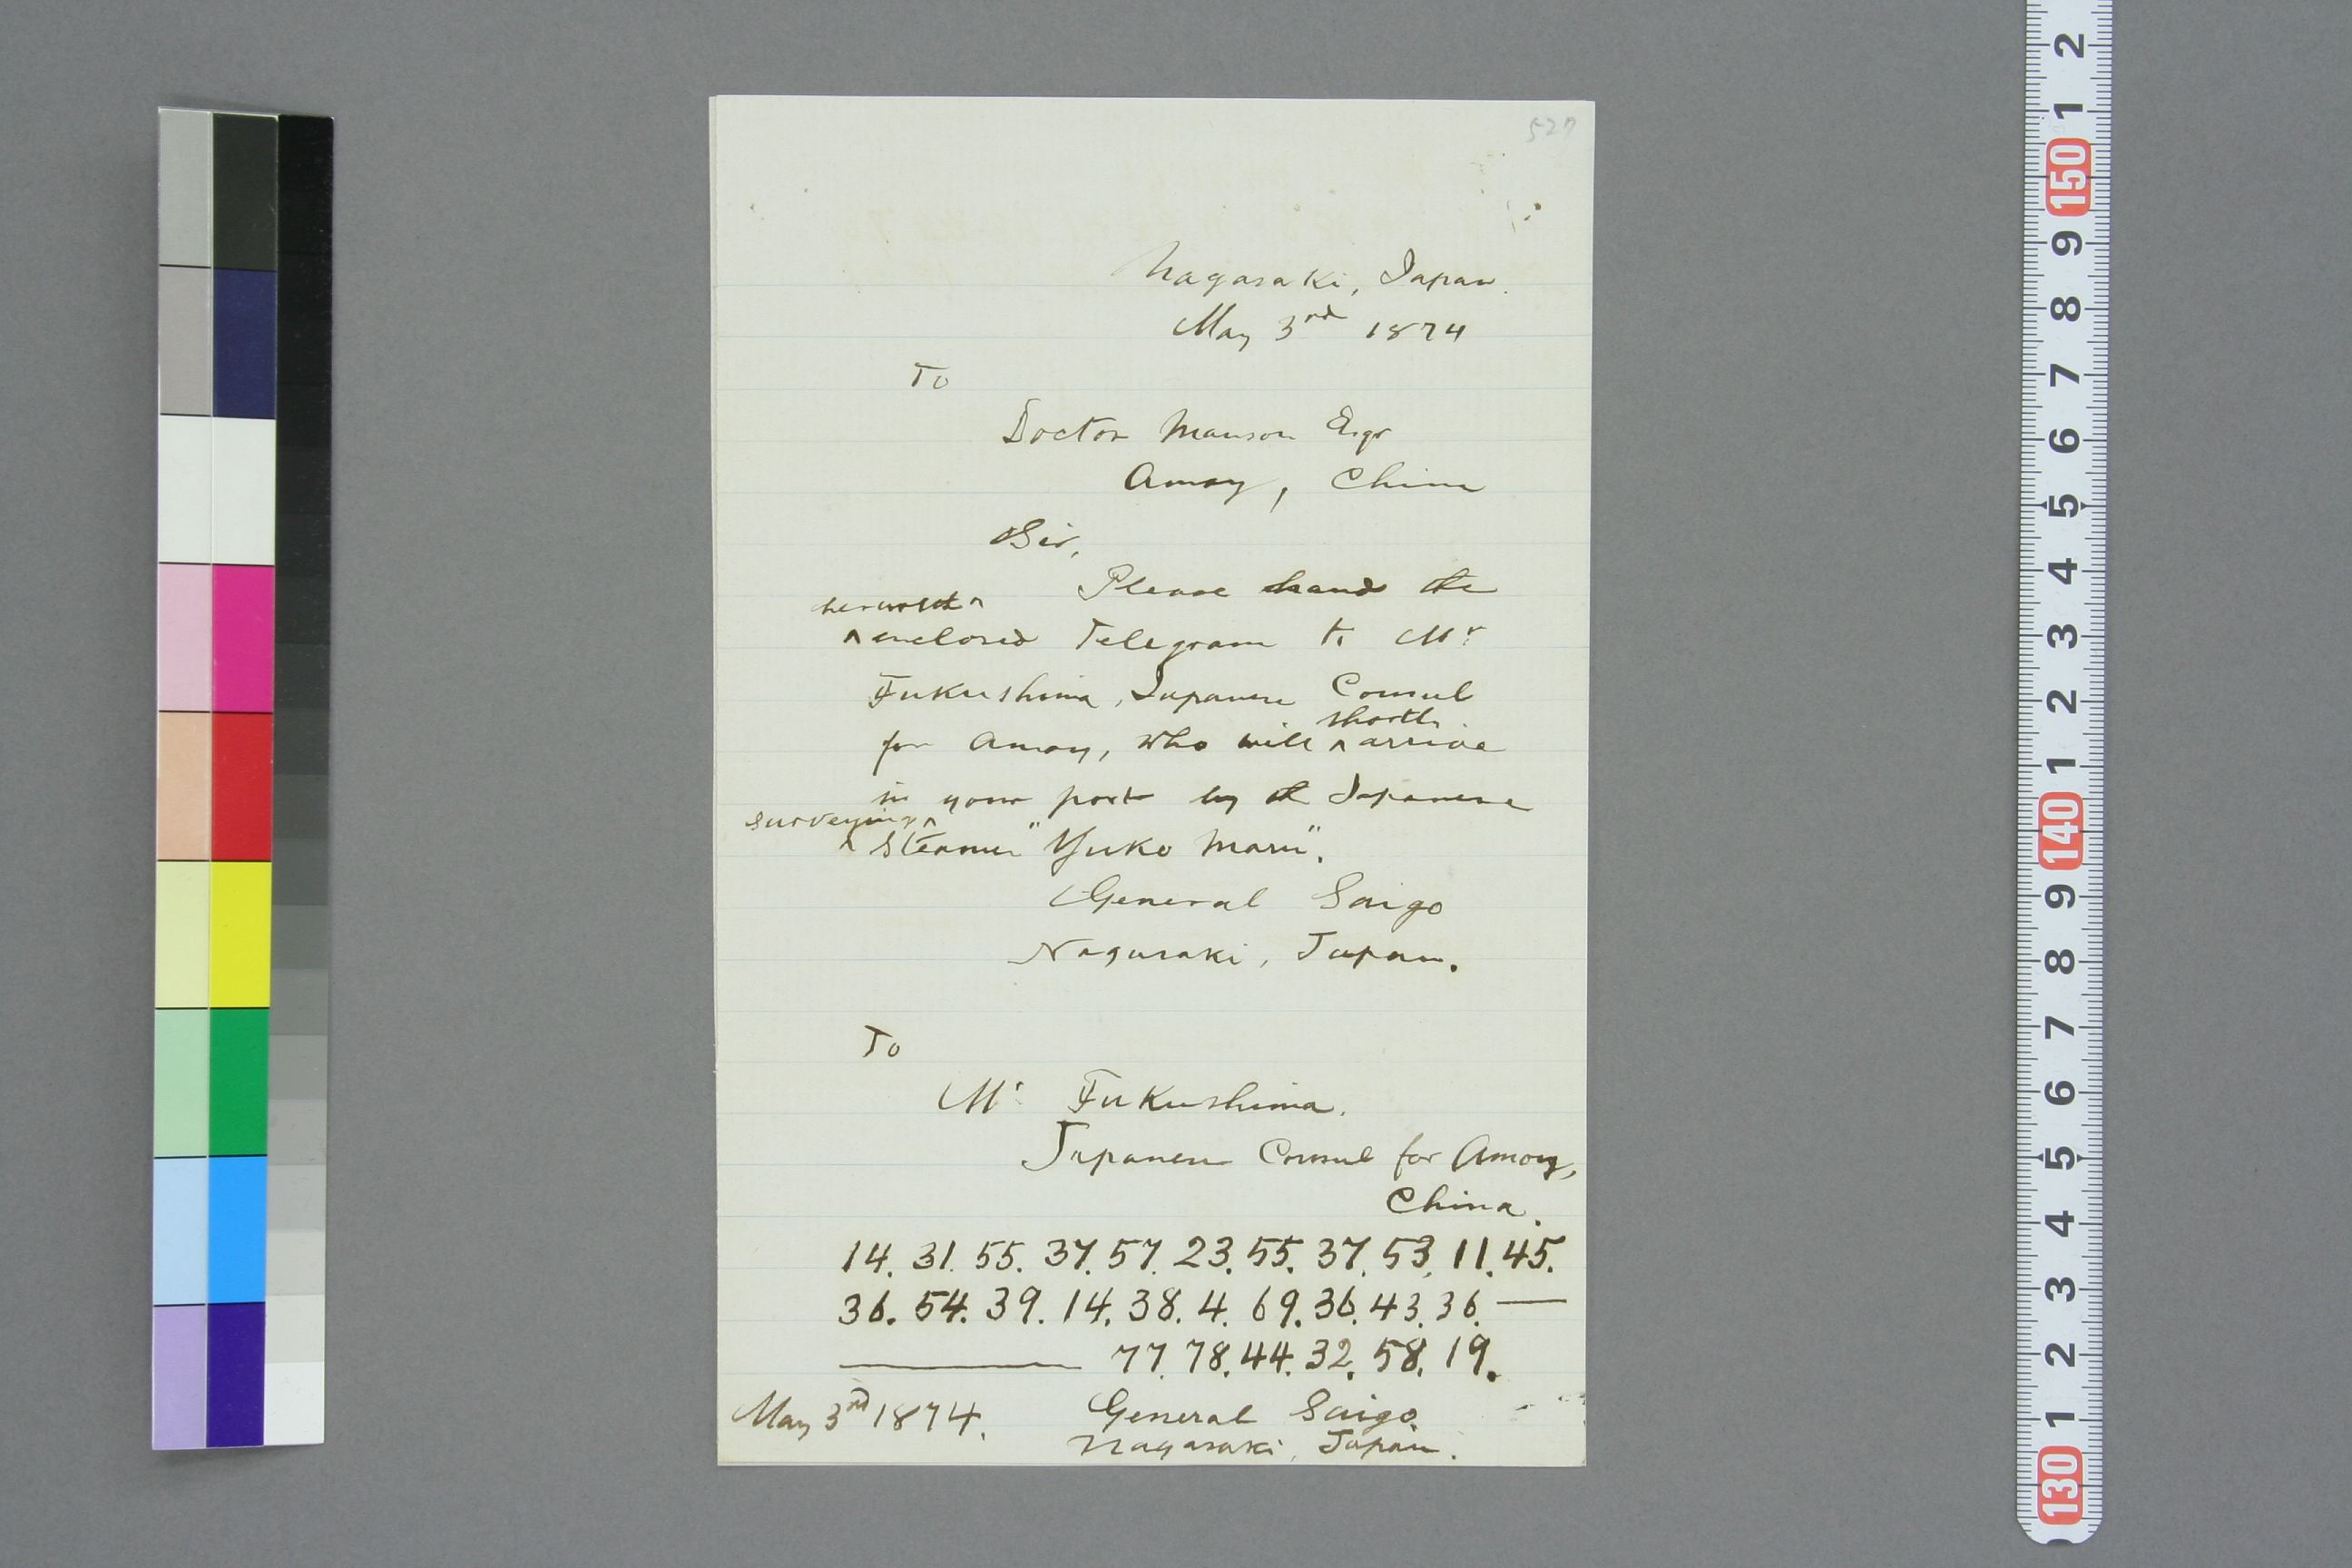 527
Nagasaki, Japan.
May 3rd 1874
To
Doctor Manson Esqr
Amoy, China
Sir,
Please hand the
herewith
enclosed Telegram to Mr
Fukushima, Japanese Consul
shortly
for Amoy, who will arrive
in your port by the Japanese
surveying
Steamer "Yuko Maru".
General Saigo
Nagasaki, Japan.
To
Mr Fukushima.
Japanese Consul for Amoy,
China.
14. 31. 55. 37. 57. 23. 55. 37. 53. 11. 45.
36. 54. 39. 14. 38. 4. 69. 36. 43. 36. —
— 77. 78. 44. 32. 58. 19.
May 3rd 1874. General Saigo.
Nagasaki, Japan.
2
1
150
9
8
7
6
5
4
3
2
1
140
9
8
7
6
5
4
3
2
1
130